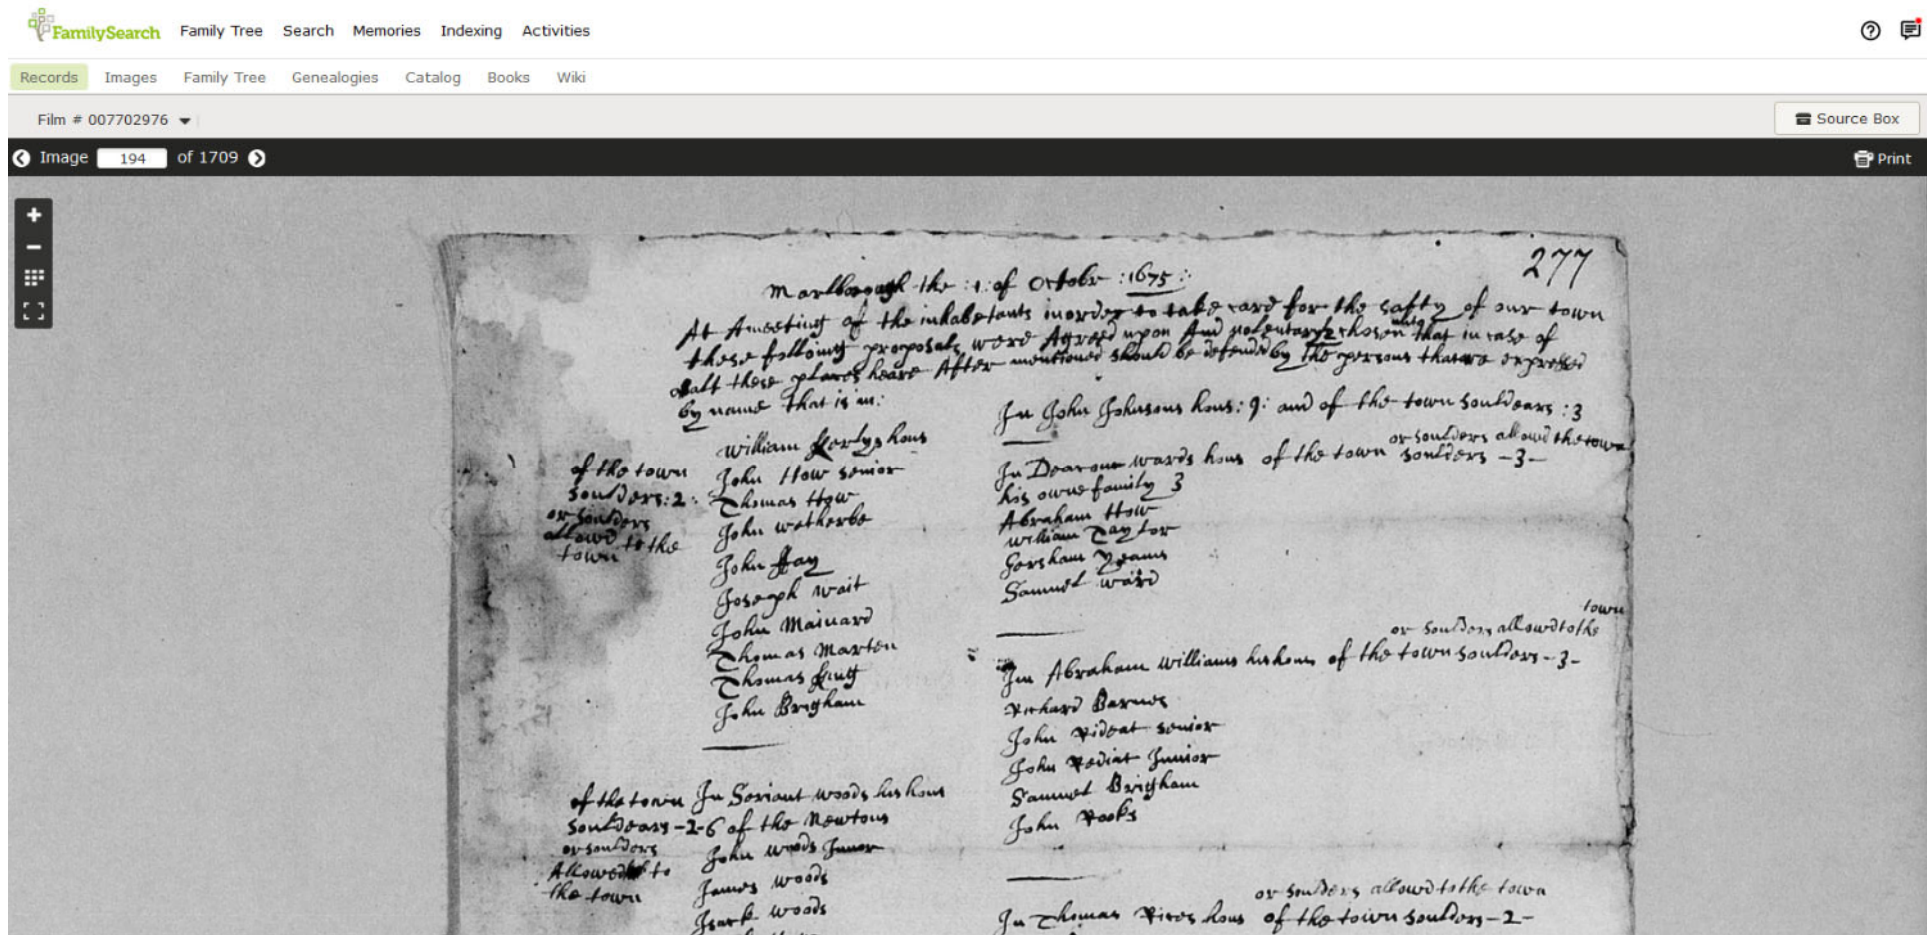 FamilySearch Family Tree Search Memories Indexing Activities
Records Images Family Tree Genealogies Catalog Books Wiki
Film # 007702976
Source Box
Image 194 of 1709
Print
277
Marlborough the :1: of October :1675:
At A meeting of the inhabetants in order to take card for the safty of our town
these following proposals were Agreed upon And volentaryly chosen unto that in case of
asalt these places heare After mentioned should be defended by the persons that are expressed
by name that is in:
william Kerlys hous
of the town
soulders: 2:
or soulders
allowd to the
town
John How senior
Thomas How
John wetherbe
John Fay
Joseph wait
John Mainard
Thomas Marten
Thomas King
John Brigham
of the town In Seriant woods his hous
souldears -2- 6 of the Newtons
or souldors
Allowed to
the town
John woods Junior
James woods
Isack woods
In John Johnsons hous: 9: and of the town souldears :3
or soulders allowd the town
In Deacon wards hous of the town soulders -3-
his owne family 3
Abraham How
william Taylor
Gorsham Yeams
Samuel ward
town
or soulders allowd to the
In Abraham williams his hous of the town soulders -3-
Richard Barnes
John Rideat senior
John Rediat Junior
Samuel Brigham
John Rooks
or soulders allowd to the town
In Thomas Rices hous of the town soulders -2-